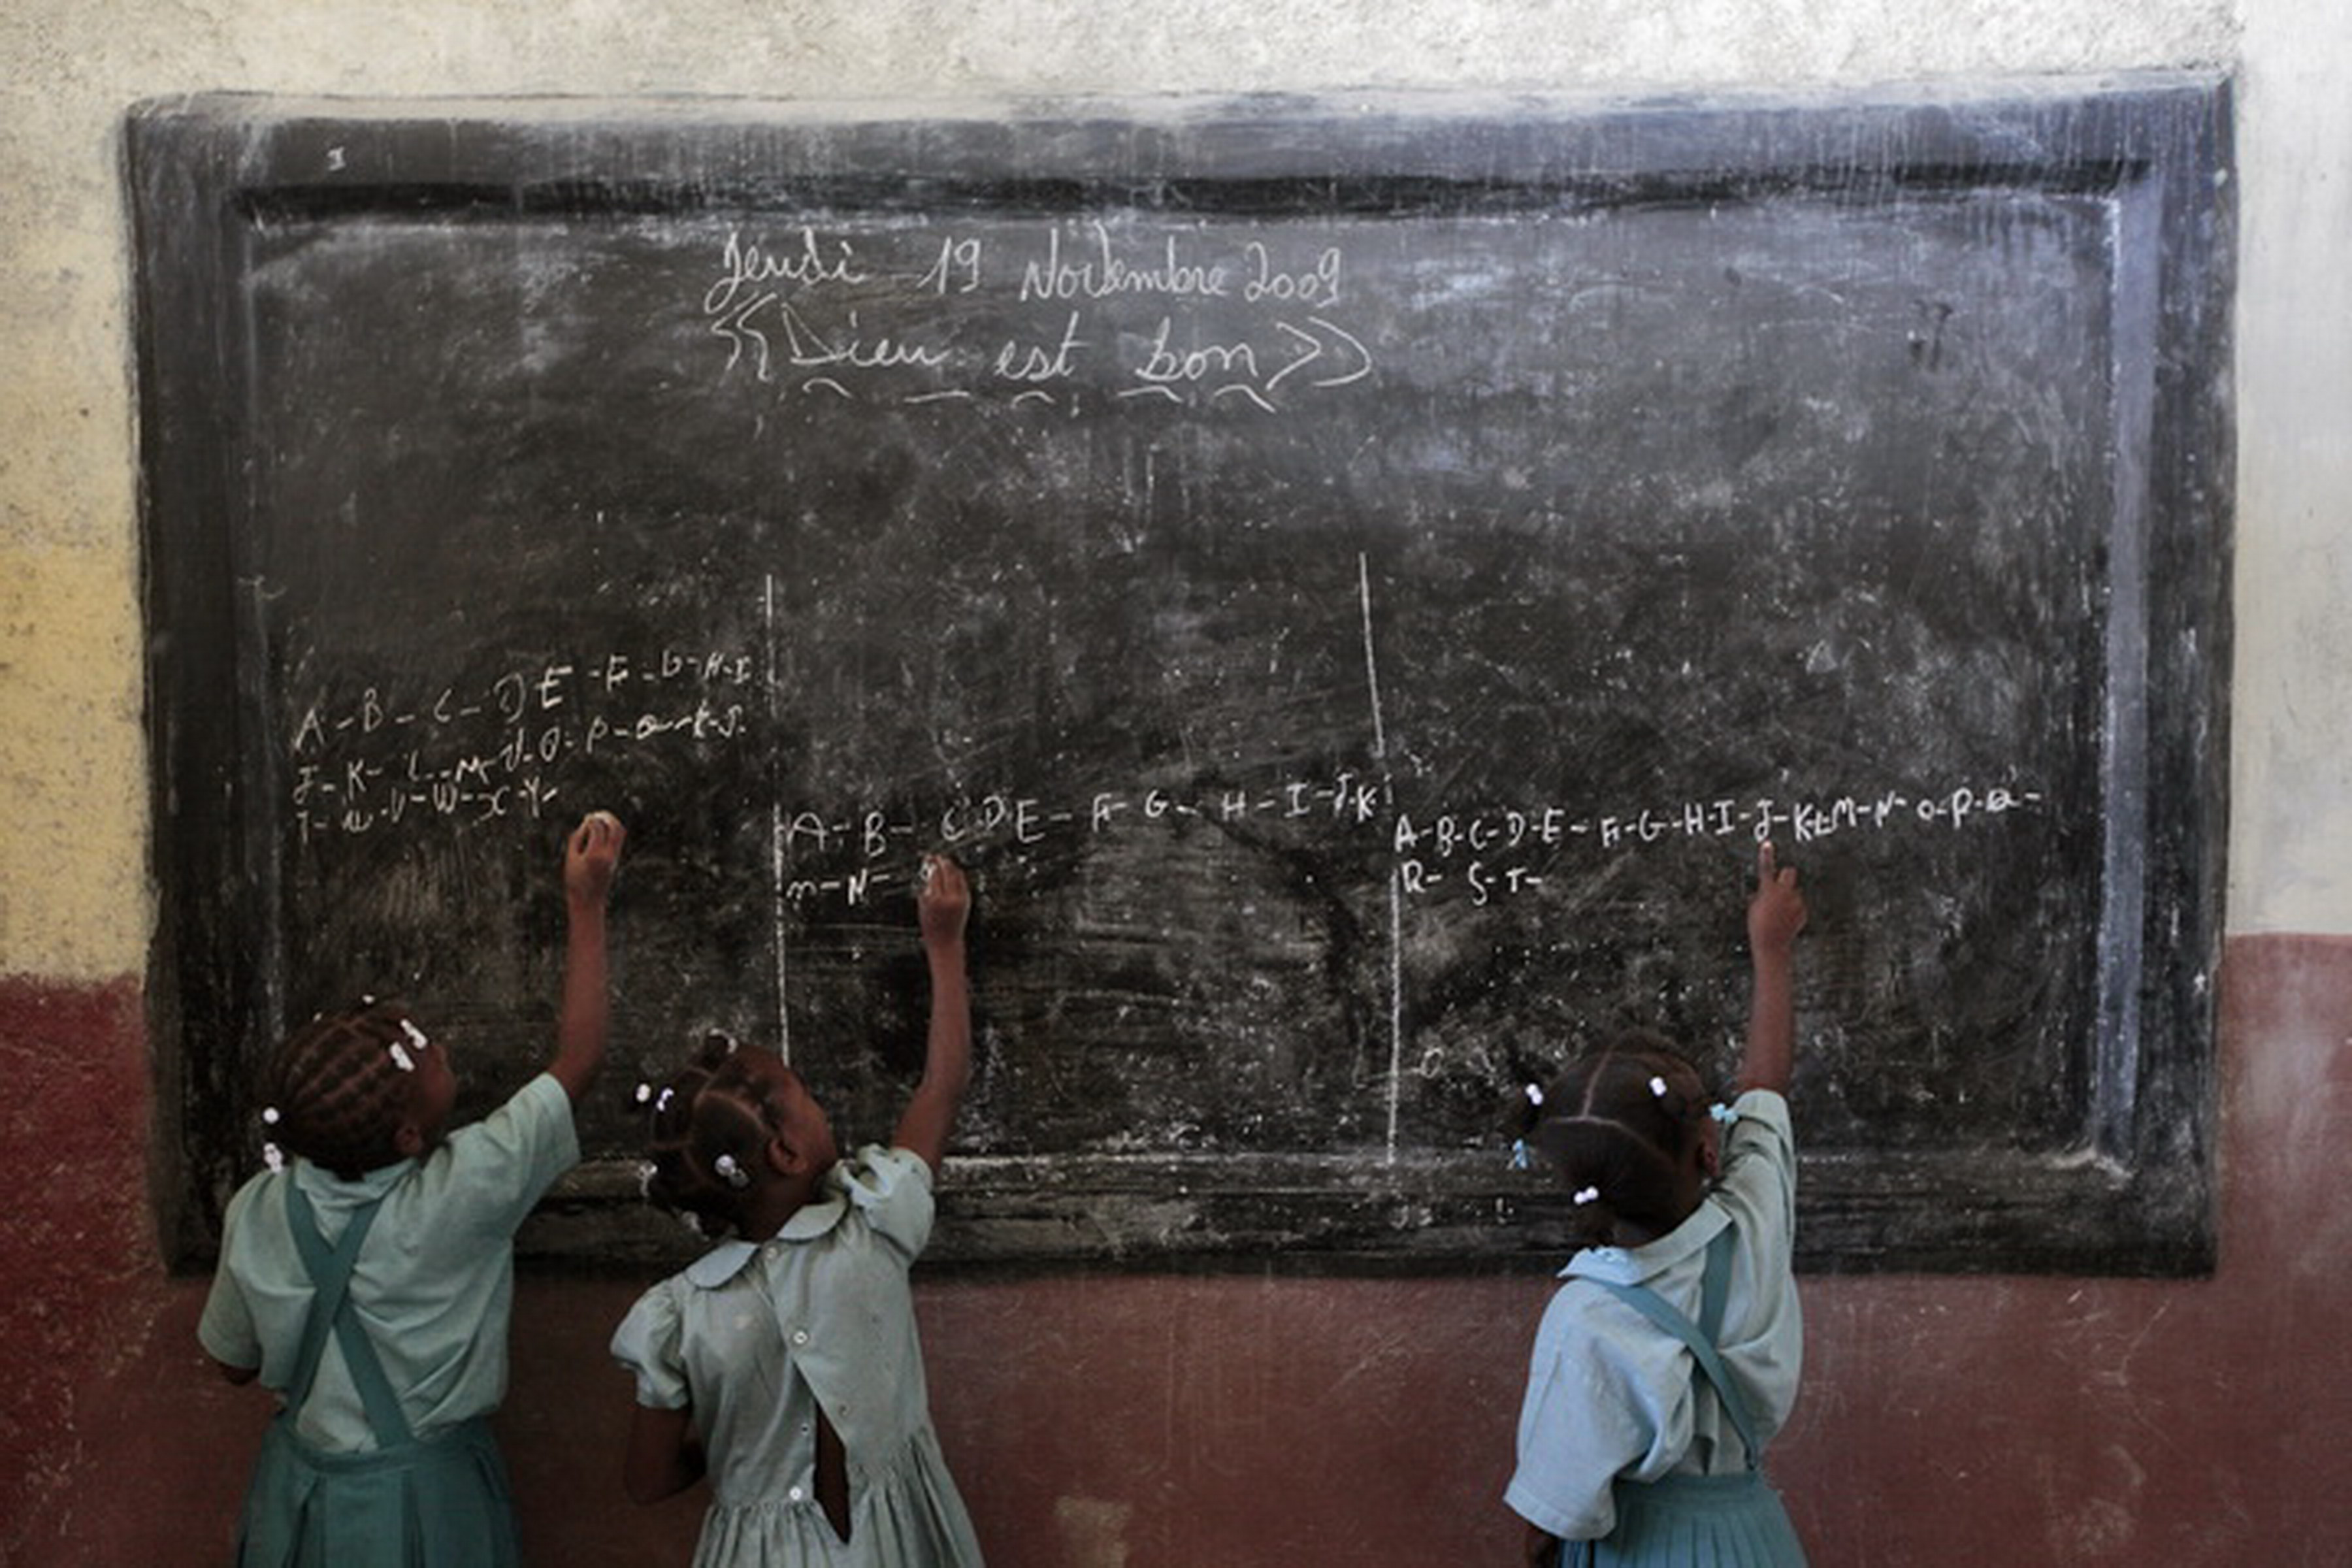 Jeudi 19 Novembre 2009
<<Dieu est bon>>
A-B-C-D E-F-G-H-I
J-K-L-M-N-O-P-Q-R-S
T-U-V-W-X-Y-
A-B-C-D E-F-G-H-I-J-K
m-N-
A-B-C-D-E-F-G-H-I-J-K-L-M-N-O-P-Q-
R-S-T-